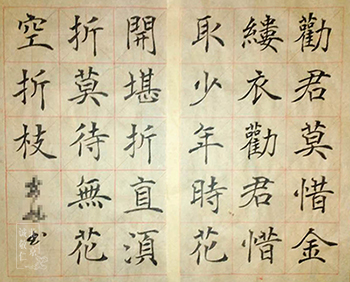 勸君莫惜金
縷衣勸君惜
取少年時花
開堪折直須
折莫待無花
空折枝
书